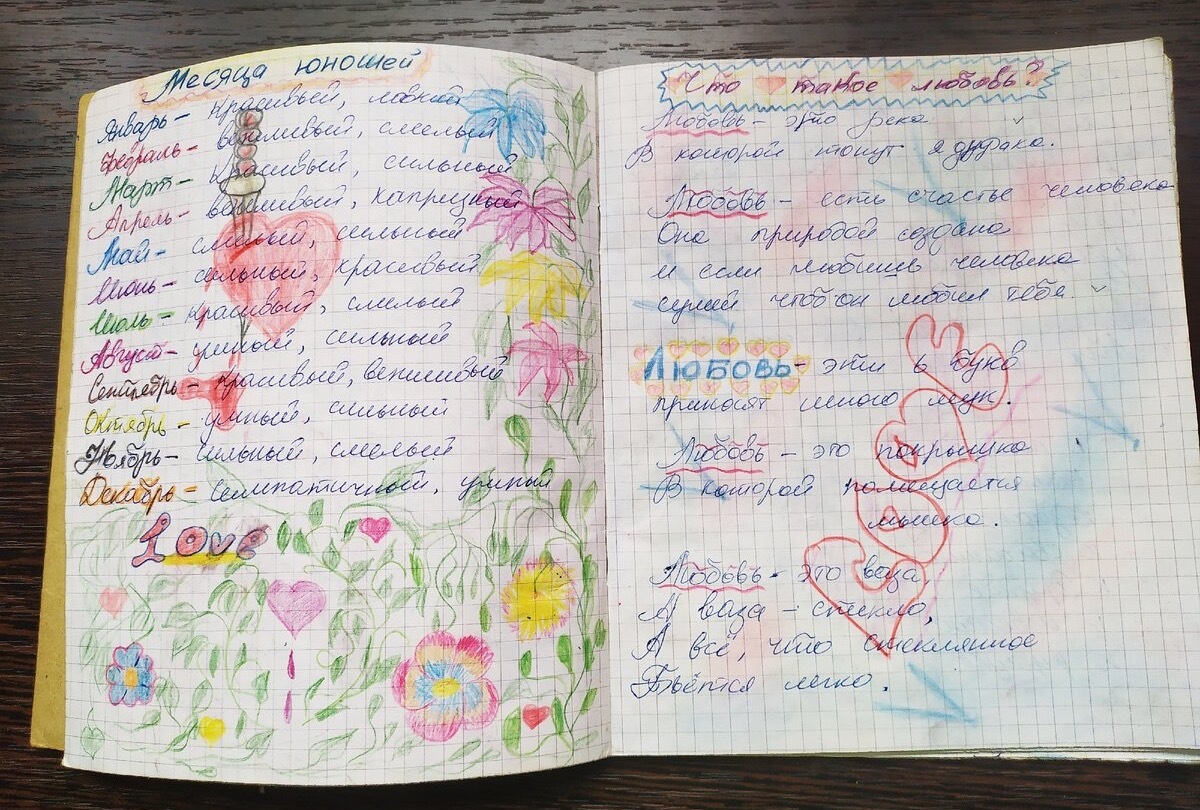 Месяца юношей
Январь- красивый, ловкий
Февраль- вежливый, смелый
Март- красивый, сильный
Апрель- вежливый, капризный
Май- смелый, сильный
Июнь- сильный, красивый
Июль- красивый, смелый
Август- умный, сильный
Сентябрь- красивый, вежливый
Октябрь- умный, сильный
Ноябрь- сильный, смелый
Декабрь- симпатичный, умный
Love
Что такое любовь?
Любовь- это река
В которой тонут я дурака.
Любовь- есть счастье человека
Она природой создана
и если любишь человека
сумей чтоб он любил тебя.
Любовь- эти 6 букв
приносят много мук.
Любовь- это покрышка
В которой помещается
мышка.
Любовь- это ваза
А ваза- стекло,
А всё, что стеклянное
Бьётся легко.